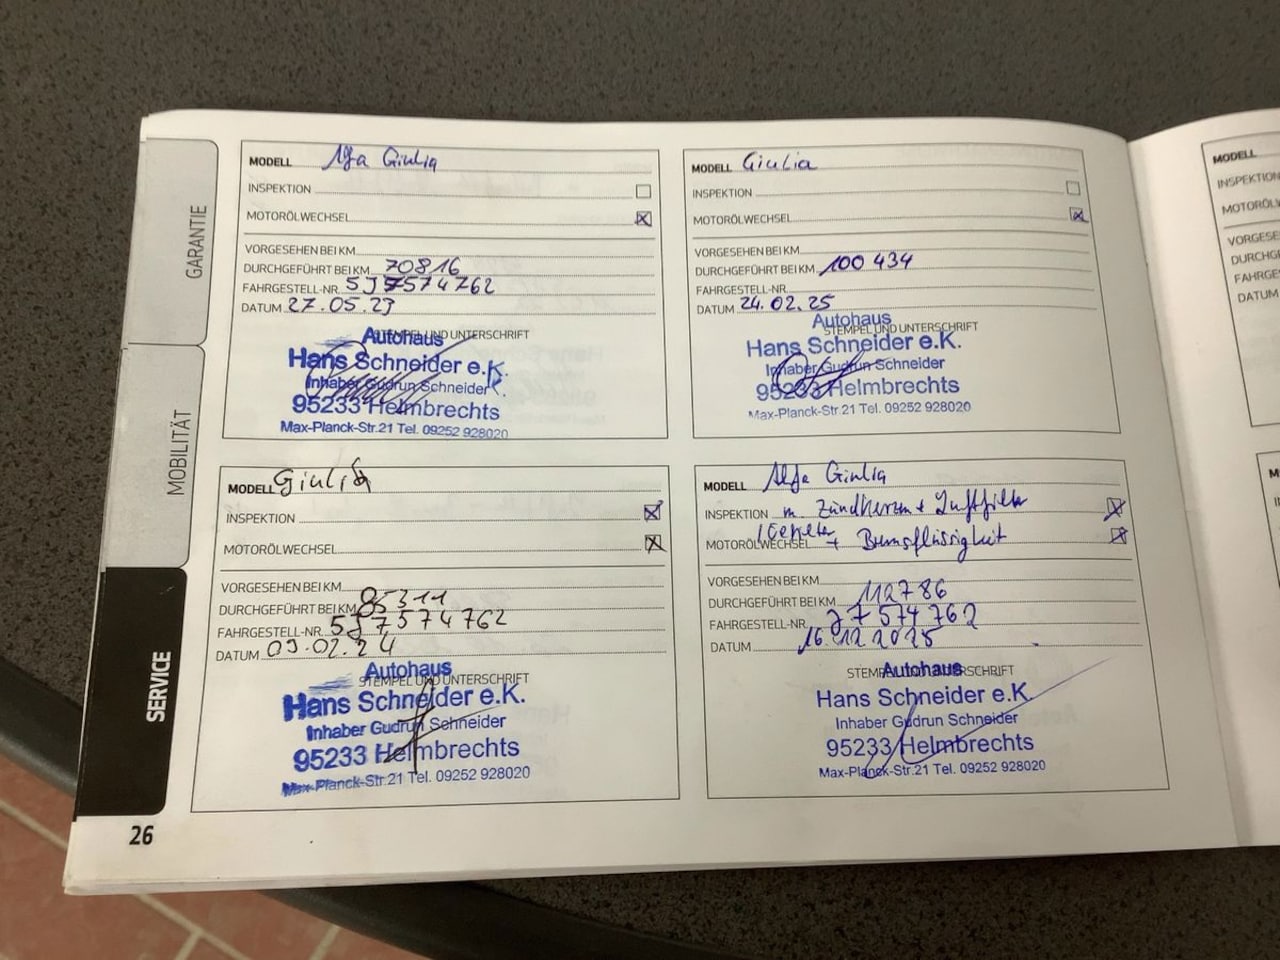 GARANTIE
MOBILITÄT
SERVICE
26
MODELL Alfa Giulia
INSPEKTION
MOTORÖLWECHSEL
VORGESEHEN BEI KM
DURCHGEFÜHRT BEI KM 70816
FAHRGESTELL-NR. 5J7574762
DATUM 27.05.23
STEMPEL UND UNTERSCHRIFT
Autohaus
Hans Schneider e.K.
Inhaber Gudrun Schneider
95233 Helmbrechts
Max-Planck-Str.21 Tel. 09252 928020
MODELL Giulia
INSPEKTION
MOTORÖLWECHSEL
VORGESEHEN BEI KM
DURCHGEFÜHRT BEI KM 100 434
FAHRGESTELL-NR.
DATUM 24.02.25
STEMPEL UND UNTERSCHRIFT
Autohaus
Hans Schneider e.K.
Inhaber Gudrun Schneider
95233 Helmbrechts
Max-Planck-Str.21 Tel. 09252 928020
MODELL Giulia
INSPEKTION
MOTORÖLWECHSEL
VORGESEHEN BEI KM
DURCHGEFÜHRT BEI KM 85311
FAHRGESTELL-NR. 5J7574762
DATUM 09.02.24
STEMPEL UND UNTERSCHRIFT
Autohaus
Hans Schneider e.K.
Inhaber Gudrun Schneider
95233 Helmbrechts
Max-Planck-Str.21 Tel. 09252 928020
MODELL Alfa Giulia
INSPEKTION m. Zündkerzen + Luftfilter
MOTORÖLWECHSEL + Bremsflüssigkeit
VORGESEHEN BEI KM
DURCHGEFÜHRT BEI KM 112786
FAHRGESTELL-NR. 77574762
DATUM 16.12.2025
STEMPEL UND UNTERSCHRIFT
Autohaus
Hans Schneider e.K
Inhaber Gudrun Schneider
95233 Helmbrechts
Max-Planck-Str.21 Tel. 09252 928020
MODELL
INSPEKTION